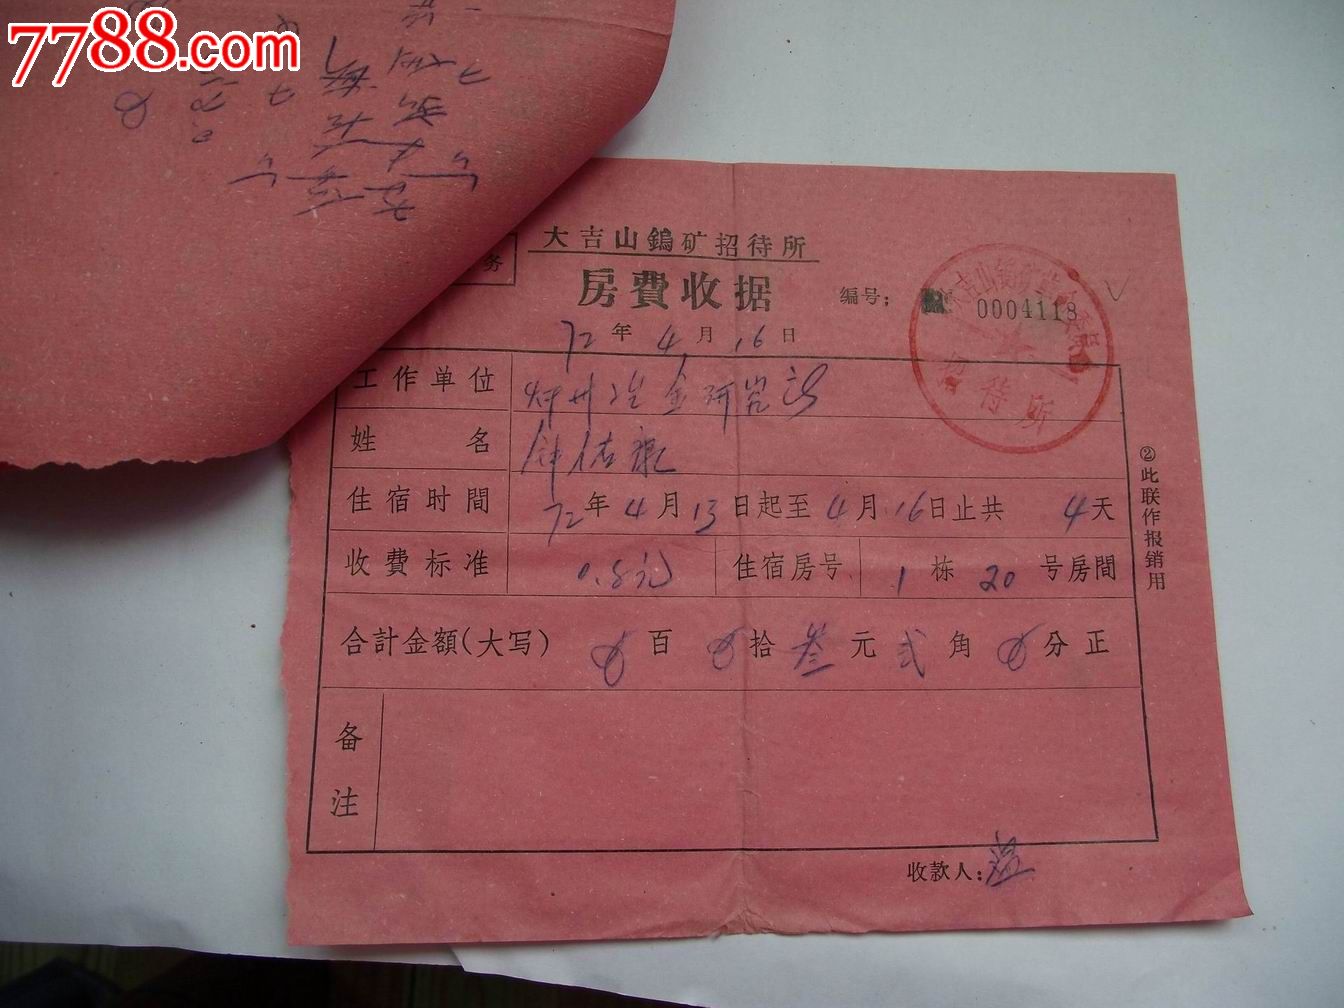 7788.com
务
大吉山鎢矿招待所
房費收据
编号: 0004118
72年4月16日
工作单位 赣州冶金研究所
姓名 钟佑
住宿时間 72年4月13日起至4月16日止共4天
收费标准 0.8元 住宿房号 1栋20号房間
合計金額(大写) 0百0拾叁元贰角0分正
备注
收款人: 温
②此联作报销用
大吉山鎢矿
招待所